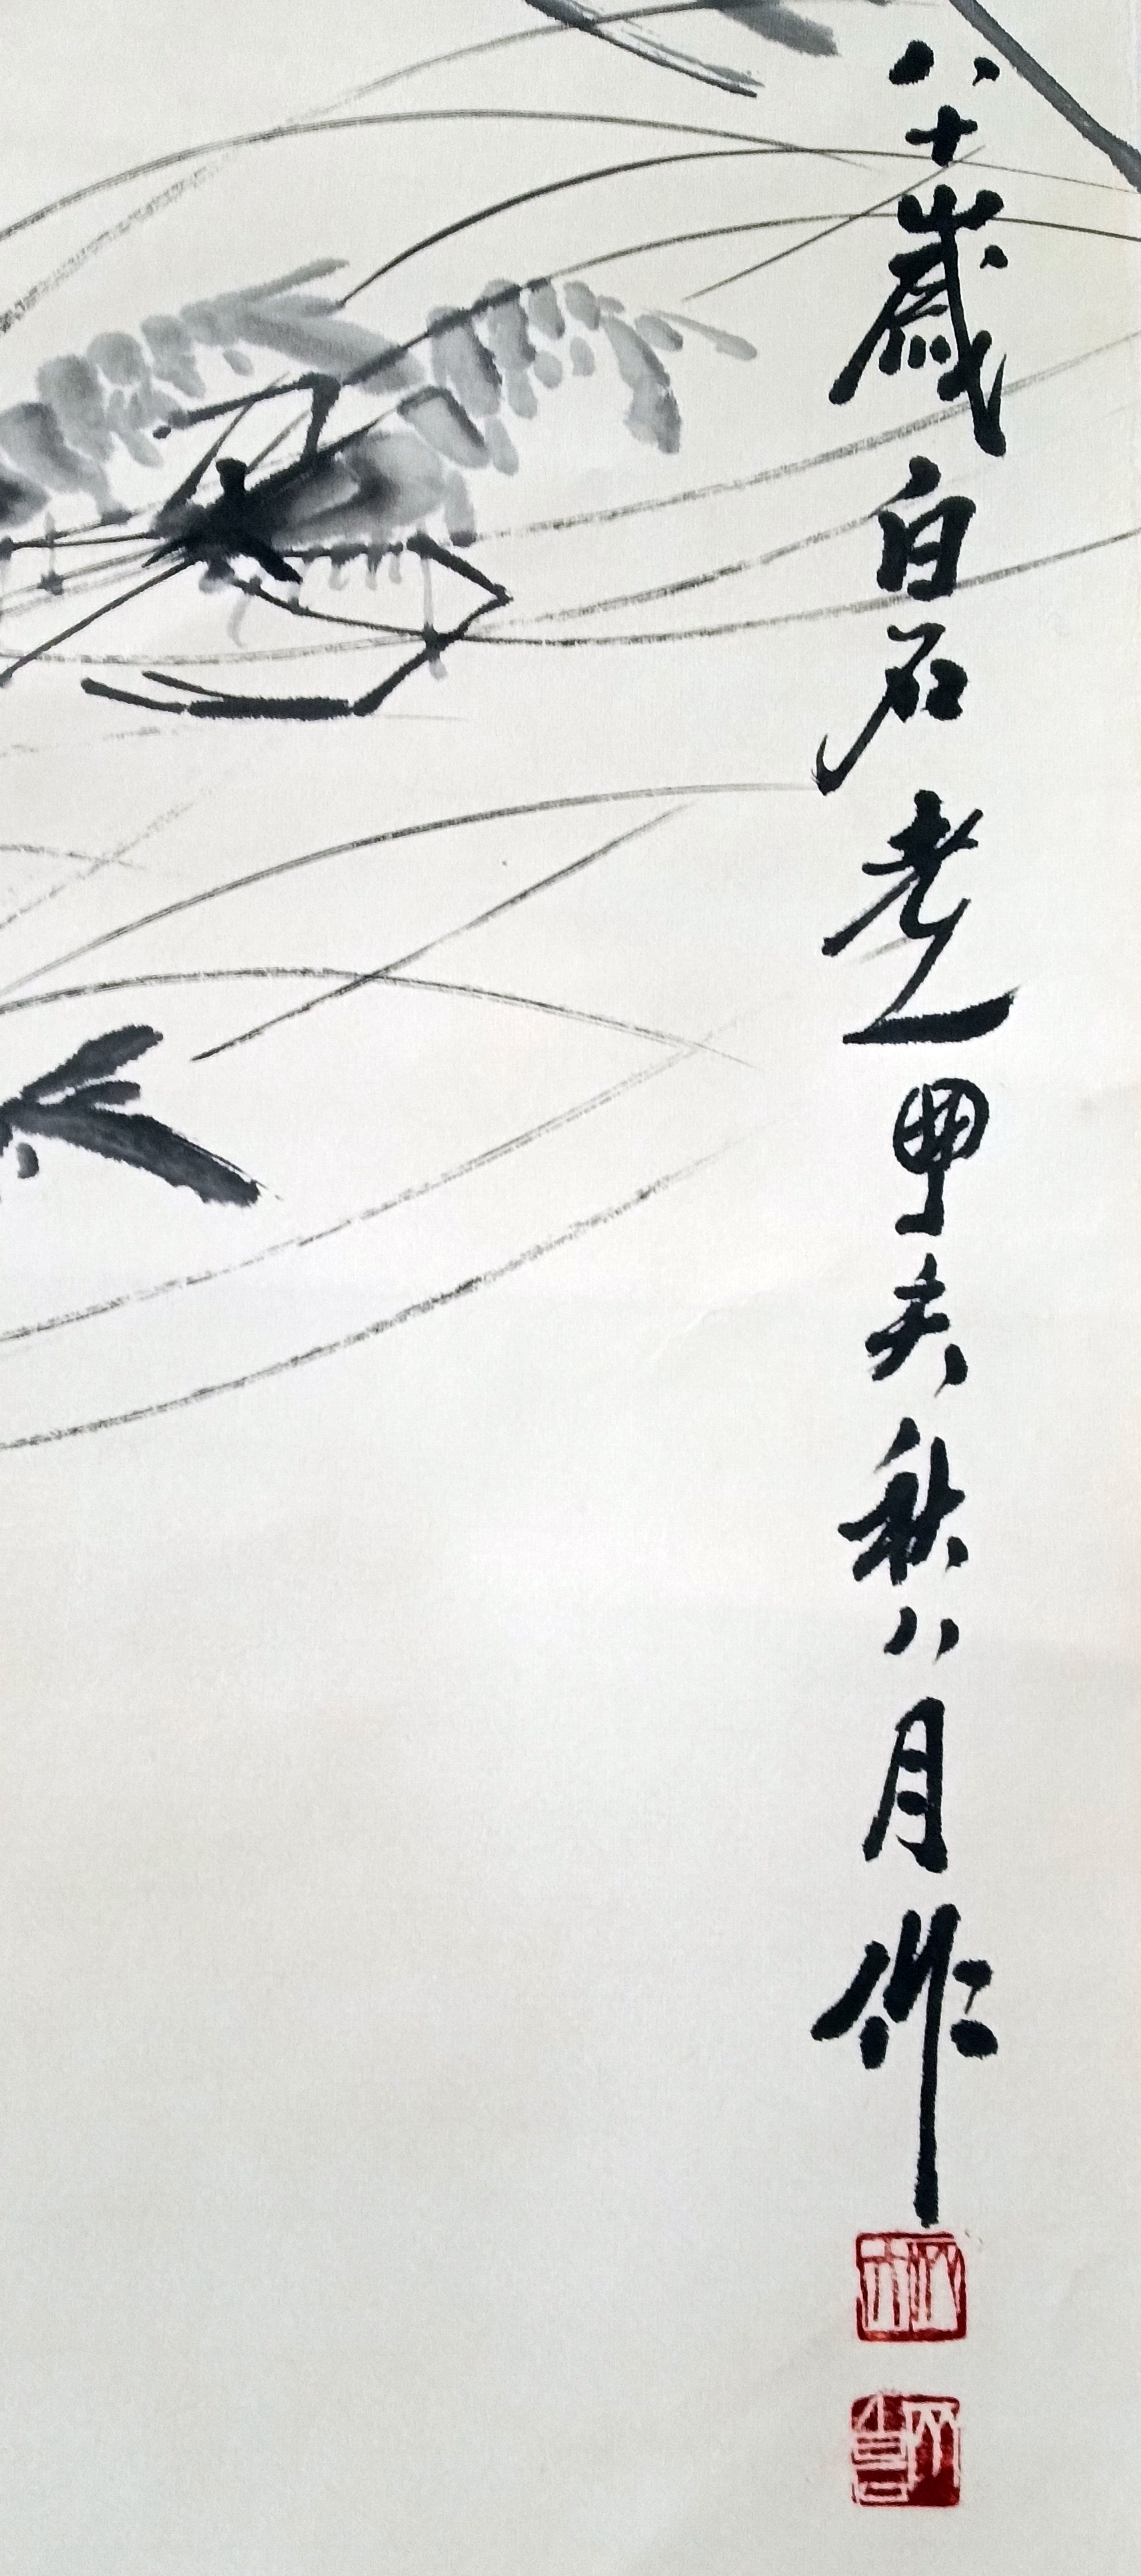 八十歲白石老甲夫秋八月作